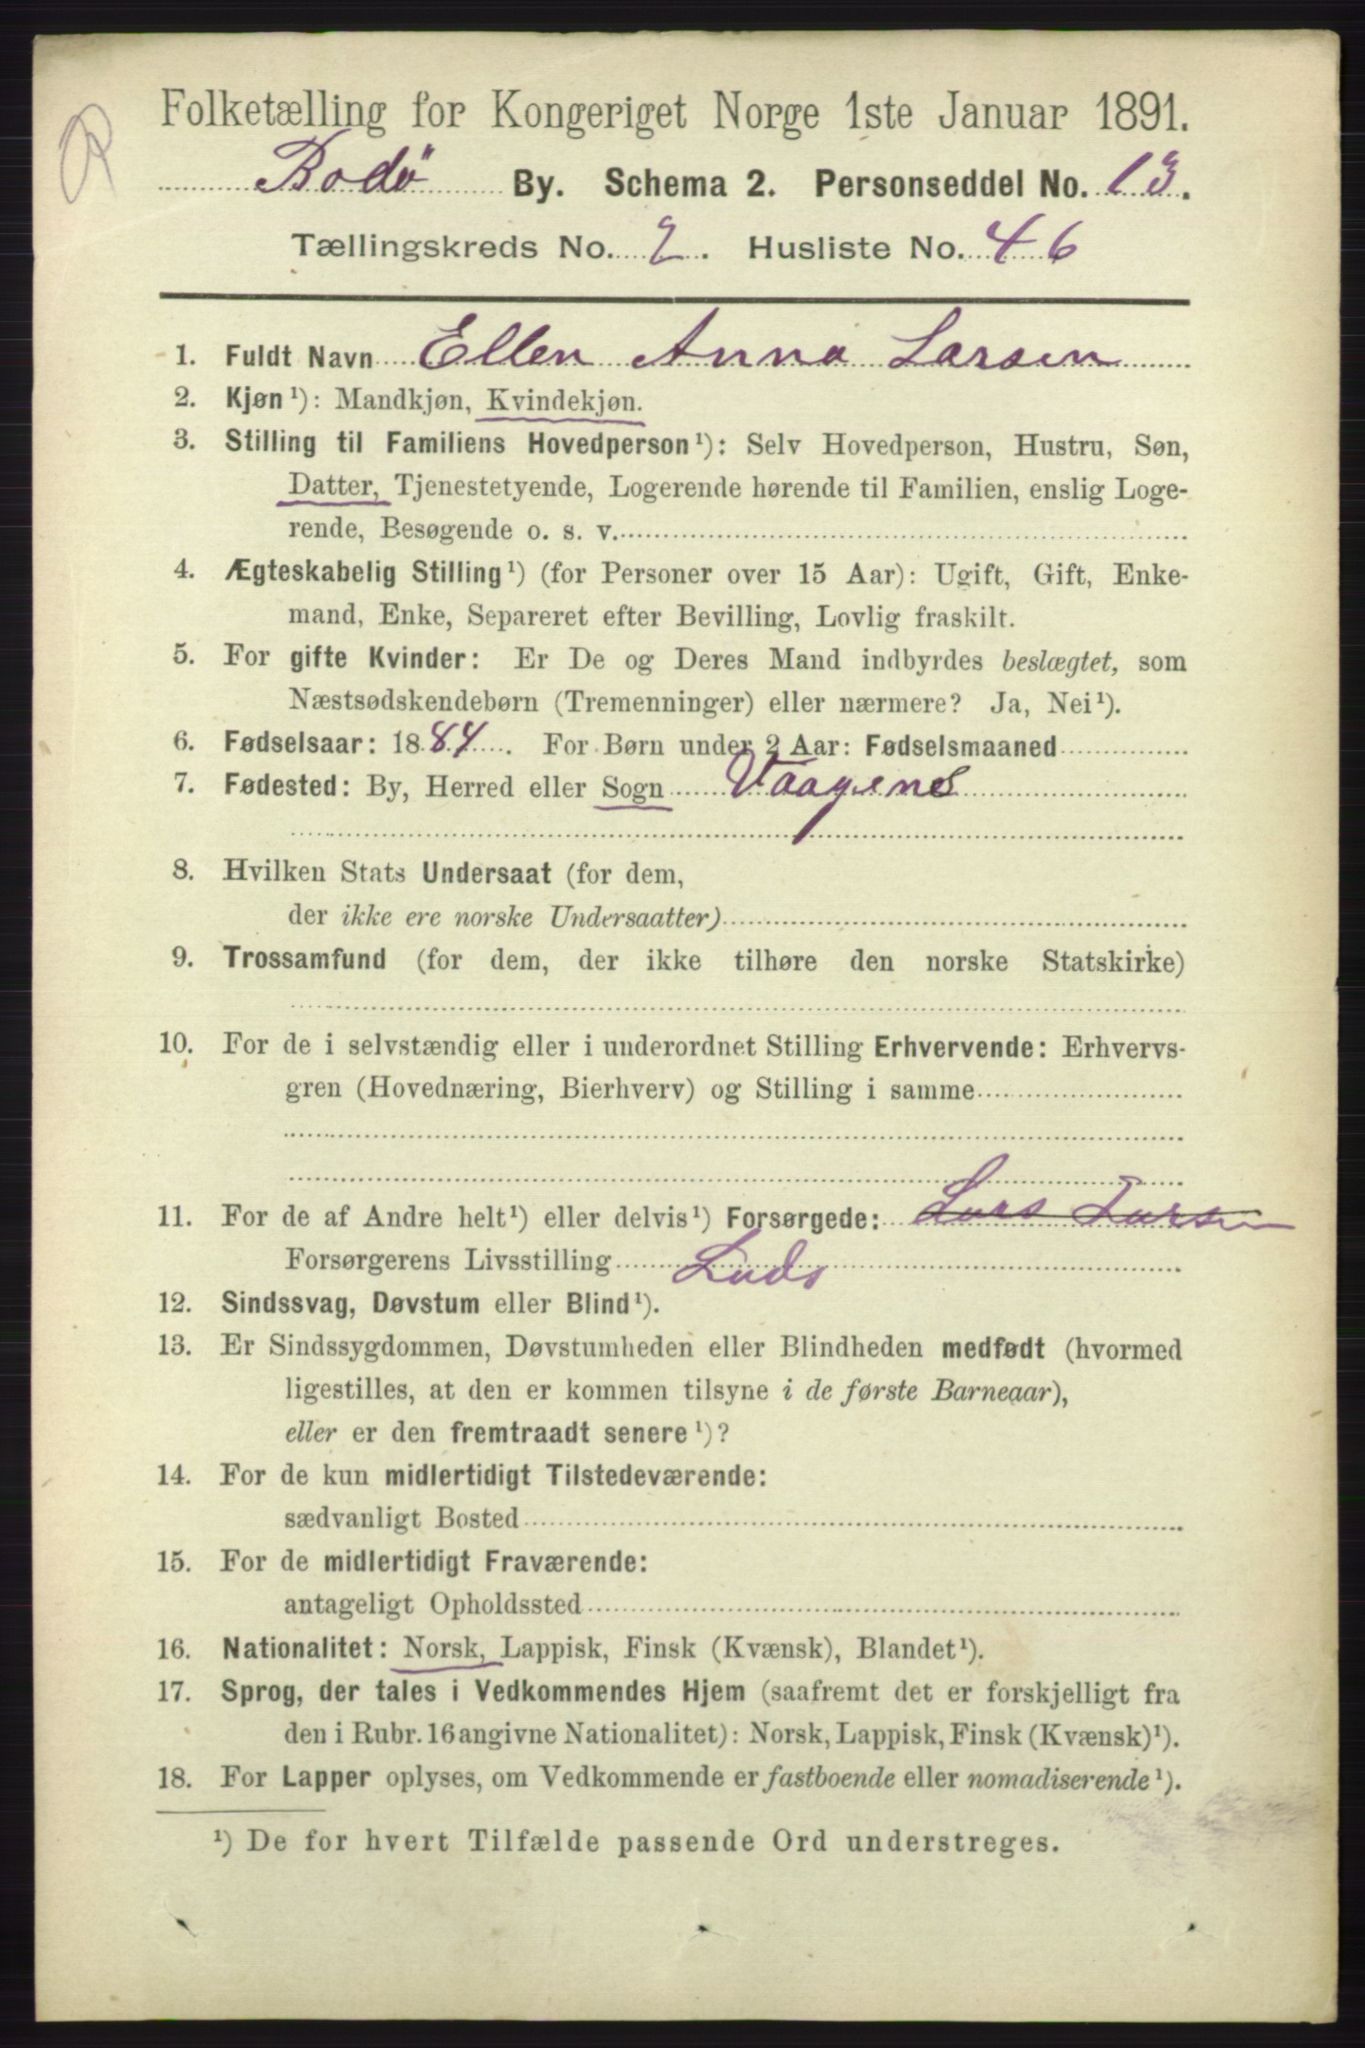 Folketælling for Kongeriget Norge 1ste Januar 1891.
Bodö By. Schema 2. Personseddel No. 13.
Tællingskreds No. 2. Husliste No. 46
1. Fuldt Navn Ellen Anna Larsen
2. Kjøn¹): Mandkjøn, Kvindekjøn.
3. Stilling til Familiens Hovedperson¹): Selv Hovedperson, Hustru, Søn,
Datter, Tjenestetyende, Logerende hørende til Familien, enslig Loge-
rende, Besøgende o. s. v.
4. Ægteskabelig Stilling¹) (for Personer over 15 Aar): Ugift, Gift, Enke-
mand, Enke, Separeret efter Bevilling, Lovlig fraskilt.
5. For gifte Kvinder: Er De og Deres Mand indbyrdes beslægtet, som
Næstsødskendebørn (Tremenninger) eller nærmere? Ja, Nei¹).
6. Fødselsaar: 1884. For Børn under 2 Aar: Fødselsmaaned
7. Fødested: By, Herred eller Sogn Vaagene
8. Hvilken Stats Undersaat (for dem,
der ikke ere norske Undersaatter)
9. Trossamfund (for dem, der ikke tilhøre den norske Statskirke)
10. For de i selvstændig eller i underordnet Stilling Erhvervende: Erhvervs-
gren (Hovednæring, Bierhverv) og Stilling i samme
11. For de af Andre helt¹) eller delvis¹) Forsørgede: Lars Larsen
Forsørgerens Livsstilling Lods
12. Sindssvag, Døvstum eller Blind¹).
13. Er Sindssygdommen, Døvstumheden eller Blindheden medfødt (hvormed
ligestilles, at den er kommen tilsyne i de første Barneaar),
eller er den fremtraadt senere¹)?
14. For de kun midlertidigt Tilstedeværende:
sædvanligt Bosted
15. For de midlertidigt Fraværende:
antageligt Opholdssted
16. Nationalitet: Norsk, Lappisk, Finsk (Kvænsk), Blandet¹).
17. Sprog, der tales i Vedkommendes Hjem (saafremt det er forskjelligt fra
den i Rubr. 16 angivne Nationalitet): Norsk, Lappisk, Finsk (Kvænsk)¹).
18. For Lapper oplyses, om Vedkommende er fastboende eller nomadiserende¹).
¹) De for hvert Tilfælde passende Ord understreges.